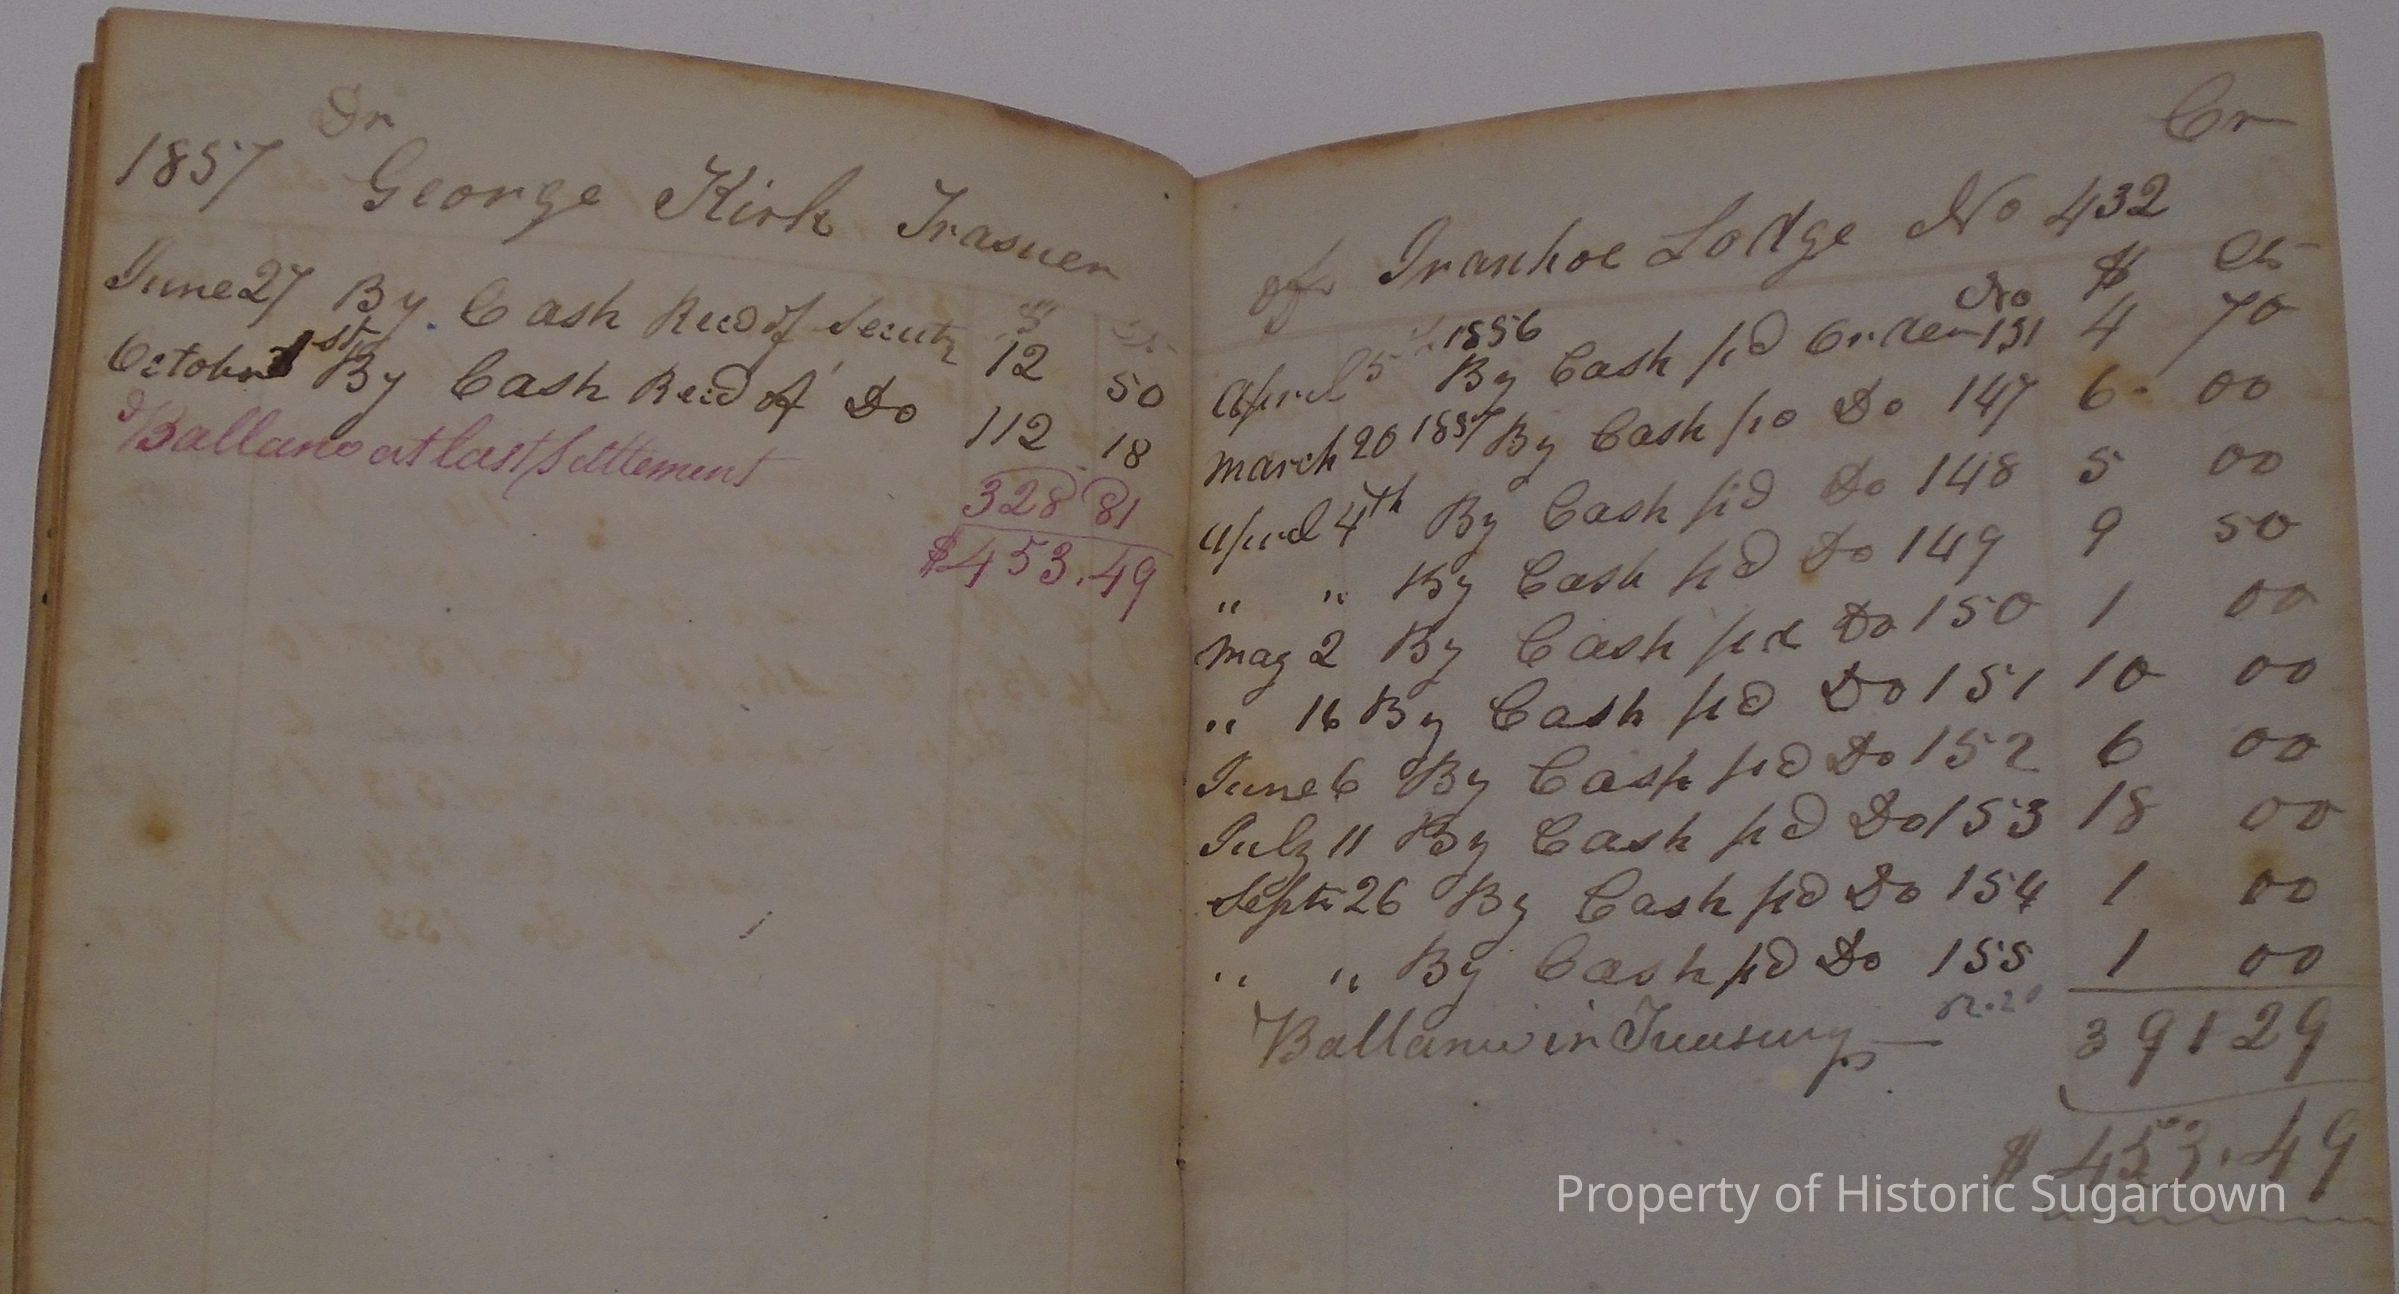 Dr
1857 George Kirk Trasuer
$ Cts
June 27 By Cash Recd of Secrty 12 50
October 1st By Cash Recd of Do 112 18
Ballance at last Settlement 328 81
$453.49
Cr
of Ivanhoe Lodge No 432
No $ Cts
April 5 1856 By Cash pd Order 131 4 70
March 20 1857 By Cash pd Do 147 6 00
Aprel 4th By Cash pd Do 148 5 00
" " By Cash pd Do 149 9 50
May 2 By Cash pd Do 150 1 00
" 16 By Cash pd Do 151 10 00
June 6 By Cash pd Do 152 6 00
July 11 By Cash pd Do 153 18 00
Septr 26 By Cash pd Do 154 1 00
" " By Cash pd Do 155 1 00
Ballance in Treasury — 391 29
$453.49
Property of Historic Sugartown